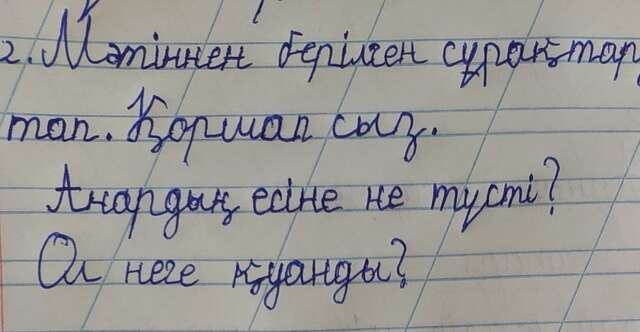 2. Мәтіннен берілген сұрақтар
тап. Қоршап сыз.
Анардың есіне не түсті?
Ол неге қуанды?